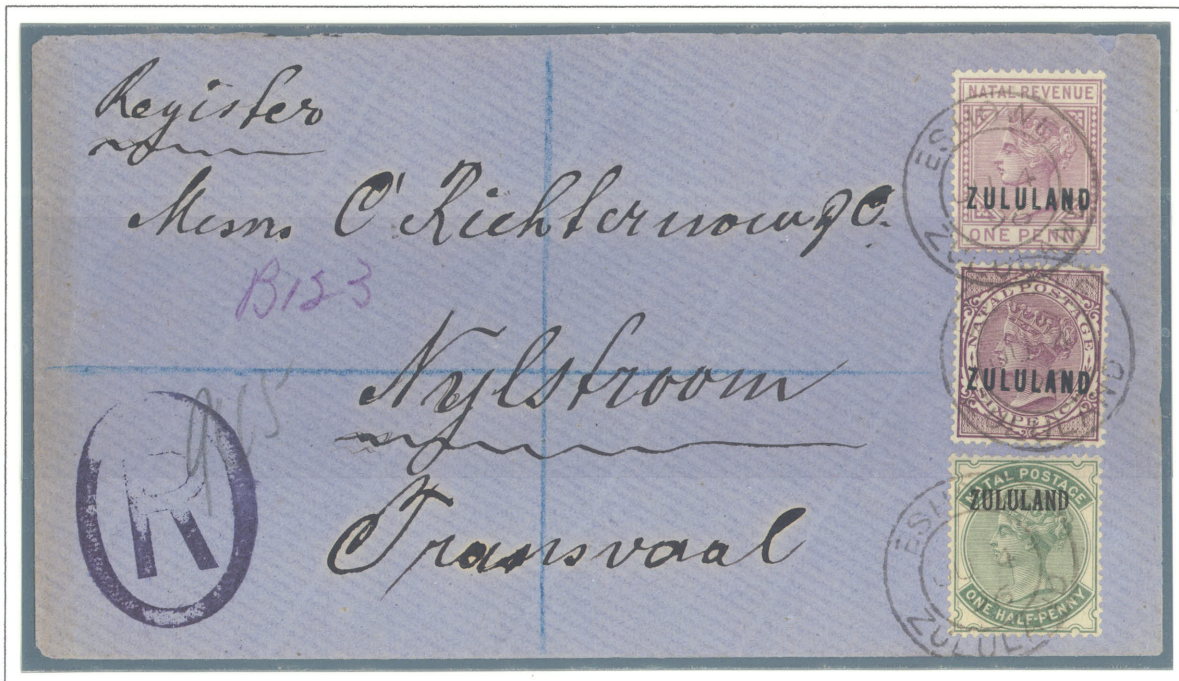 Register
Messrs C Richternow & C.
B123
Nylstroom
Transvaal
R
NATAL REVENUE
ZULULAND
ONE PENNY
NATAL POSTAGE
ZULULAND
SIXPENCE
NATAL POSTAGE
ZULULAND
ONE HALF-PENNY
ESHOWE
ZULULAND